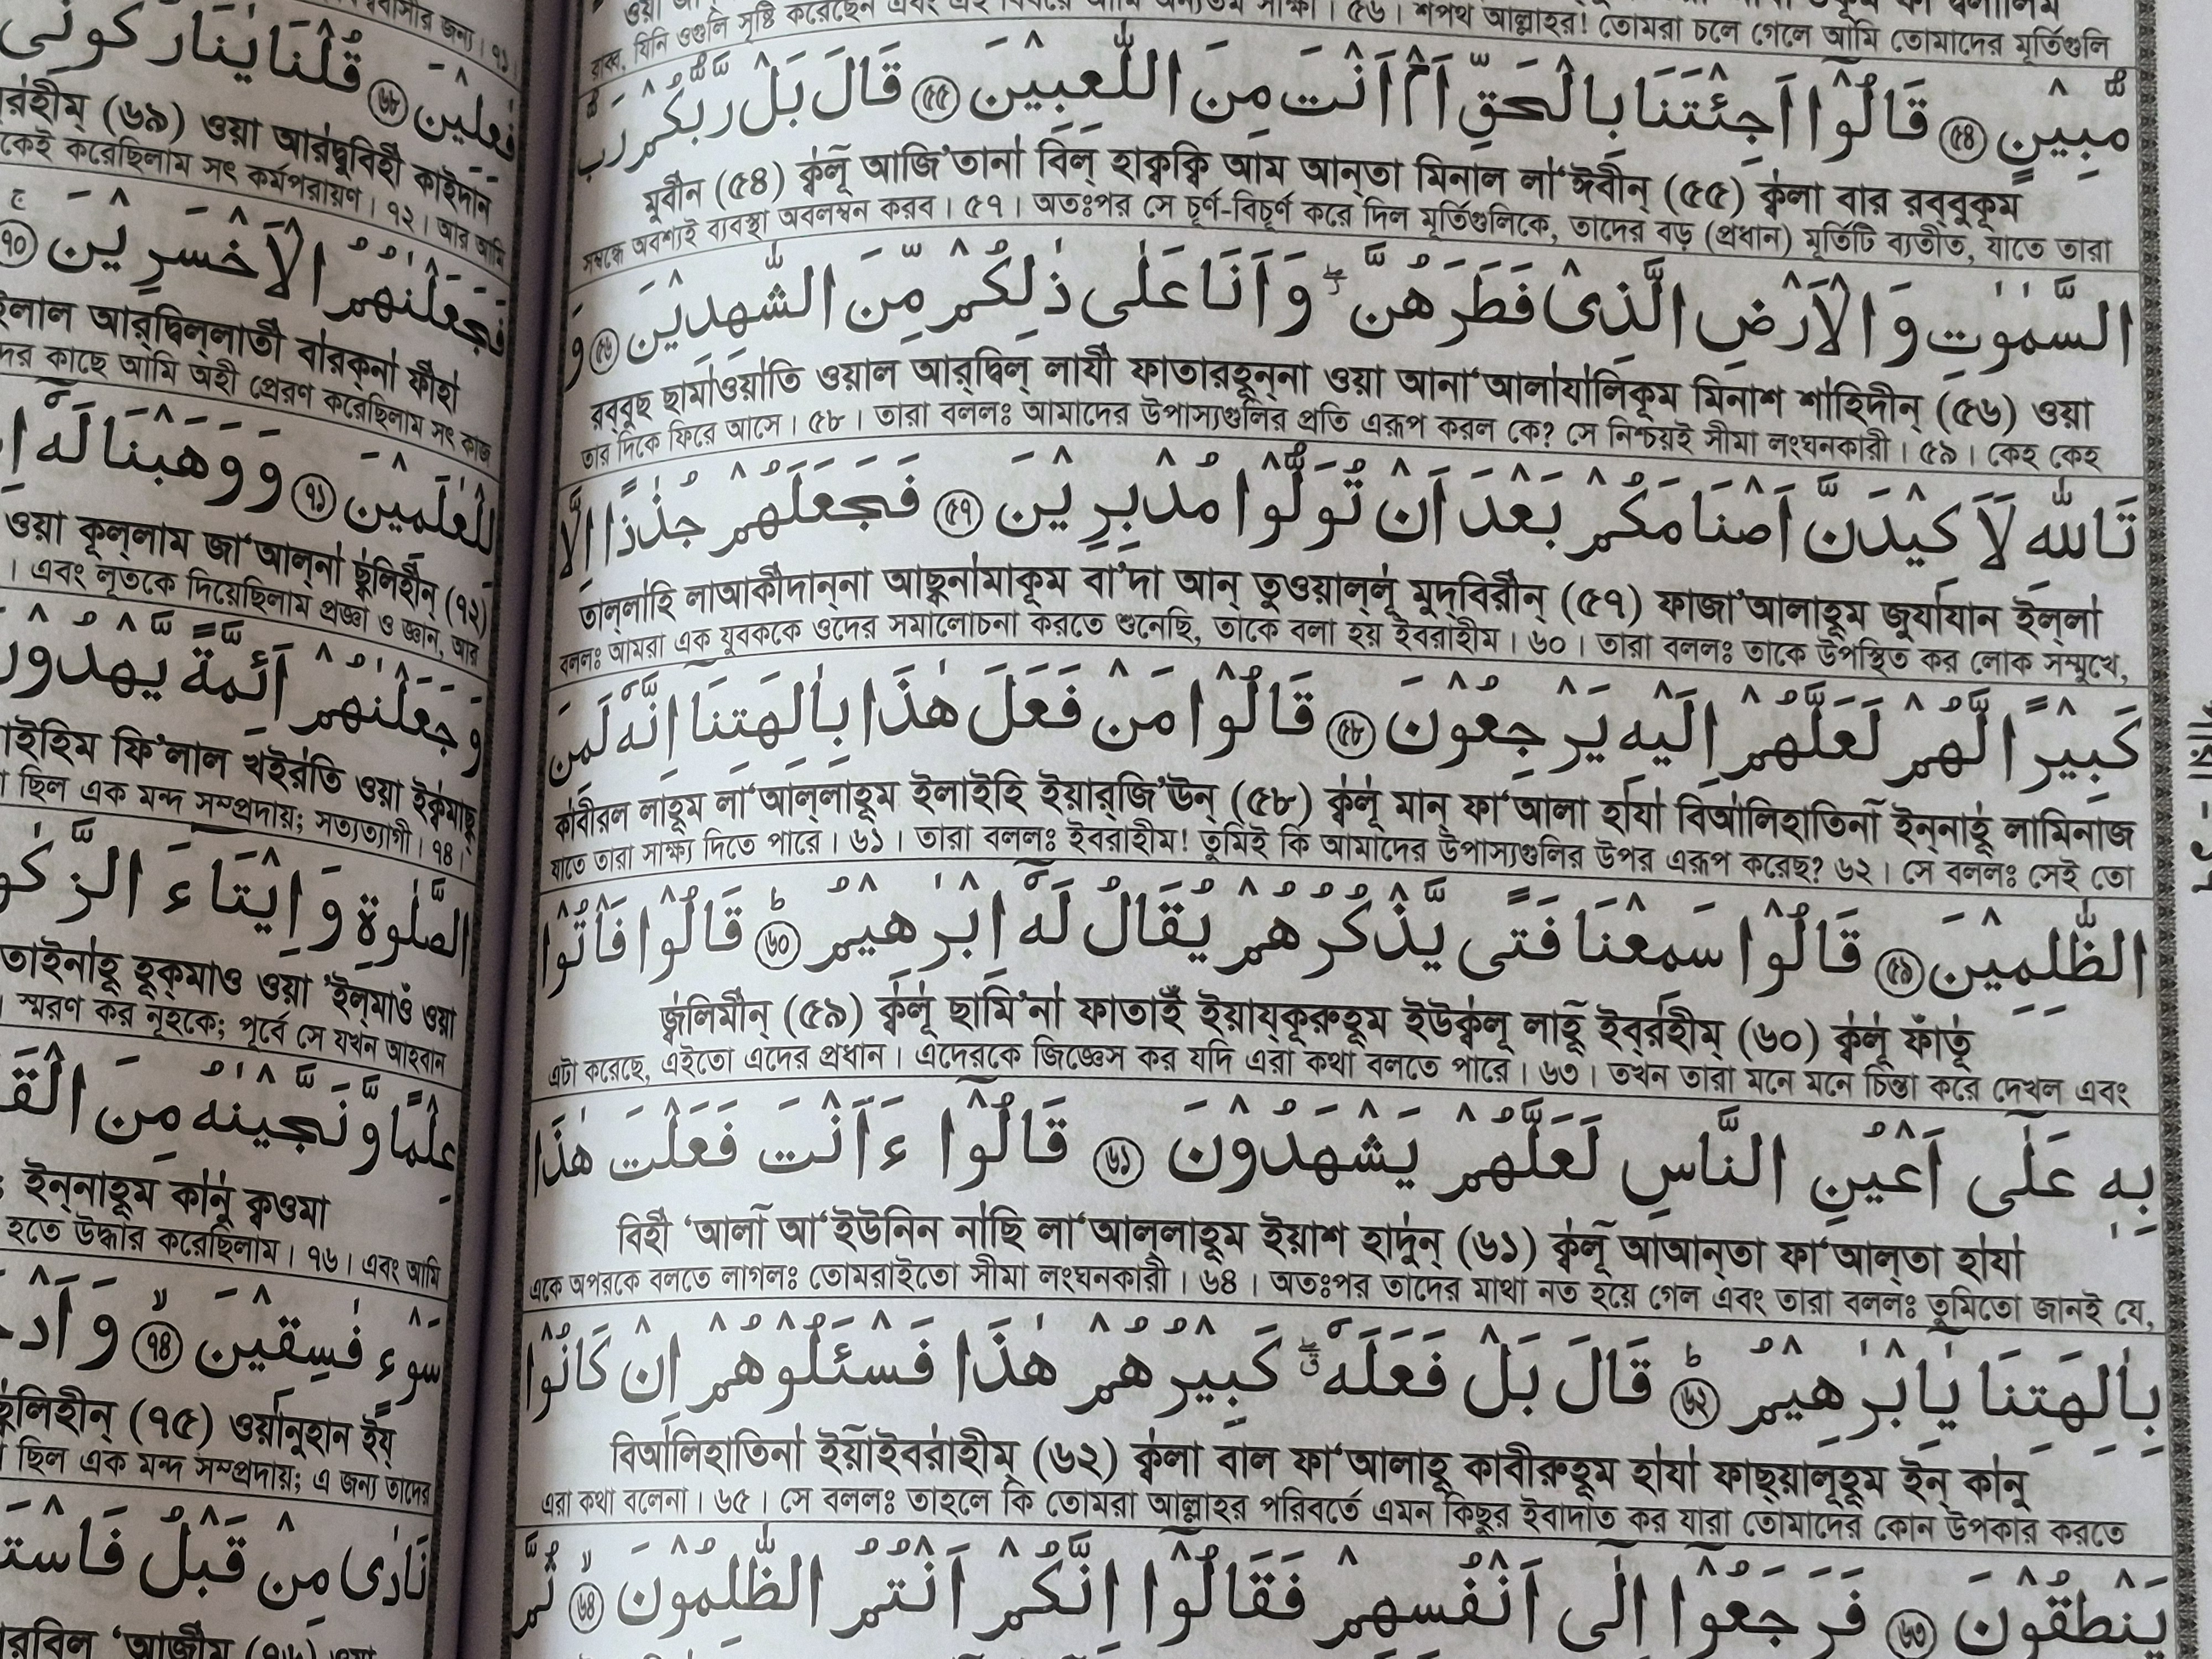 রাব্ব, যিনি ওগুলি সৃষ্টি করেছেন এবং এই বিষয়ে আমি অন্যতম সাক্ষী। ৫৬। শপথ আল্লাহর! তোমরা চলে গেলে আমি তোমাদের মূর্তিগুলি
مُّبِيْنٍ ۝৫৪ قَالُوْۤا اَجِئْتَنَا بِالْحَقِّ اَمْ اَنْتَ مِنَ اللّٰعِبِيْنَ ۝৫৫ قَالَ بَلْ رَّبُّكُمْ رَبُّ
মুবীন (৫৪) ক্বলূ আজি’তানা বিল্ হাক্বক্বি আম আন্‌তা মিনাল লা‘ঈবীন্ (৫৫) ক্বলা বার রব্‌বুকূম
সম্বন্ধে অবশ্যই ব্যবস্থা অবলম্বন করব। ৫৭। অতঃপর সে চূর্ণ-বিচূর্ণ করে দিল মূর্তিগুলিকে, তাদের বড় (প্রধান) মূর্তিটি ব্যতীত, যাতে তারা
السَّمٰوٰتِ وَ الْاَرْضِ الَّذِىْ فَطَرَهُنَّ ۖ وَ اَنَا عَلٰى ذٰلِكُمْ مِّنَ الشّٰهِدِيْنَ ۝৫৬ وَ
রব্‌বুছ ছামাওয়াতি ওয়াল আর্‌দ্বিল্ লাযী ফাতারহূন্‌না ওয়া আনা‘আলাযালিকূম মিনাশ শাহিদীন্ (৫৬) ওয়া
তার দিকে ফিরে আসে। ৫৮। তারা বললঃ আমাদের উপাস্যগুলির প্রতি এরূপ করল কে? সে নিশ্চয়ই সীমা লংঘনকারী। ৫৯। কেহ কেহ
تَاللّٰهِ لَاَكِيْدَنَّ اَصْنَامَكُمْ بَعْدَ اَنْ تُوَلُّوْا مُدْبِرِيْنَ ۝৫৭ فَجَعَلَهُمْ جُذٰذًا اِلَّا
তাল্‌লাহি লাআকীদান্‌না আছ্বনামাকূম বা’দা আন্ তুওয়াল্‌লূ মুদ্‌বিরীন্ (৫৭) ফাজা’আলাহূম জুযাযান ইল্‌লা
বললঃ আমরা এক যুবককে ওদের সমালোচনা করতে শুনেছি, তাকে বলা হয় ইবরাহীম। ৬০। তারা বললঃ তাকে উপস্থিত কর লোক সম্মুখে,
كَبِيْرًا لَّهُمْ لَعَلَّهُمْ اِلَيْهِ يَرْجِعُوْنَ ۝৫৮ قَالُوْا مَنْ فَعَلَ هٰذَا بِاٰلِهَتِنَا اِنَّهٗ لَمِنَ
কাবীরল লাহূম লা‘আল্‌লাহূম ইলাইহি ইয়ার্‌জি’ঊন্ (৫৮) ক্বলূ মান্ ফা‘আলা হাযা বিআলিহাতিনা ইন্‌নাহূ লামিনাজ
যাতে তারা সাক্ষ্য দিতে পারে। ৬১। তারা বললঃ ইবরাহীম! তুমিই কি আমাদের উপাস্যগুলির উপর এরূপ করেছ? ৬২। সে বললঃ সেই তো
الظّٰلِمِيْنَ ۝৫৯ قَالُوْا سَمِعْنَا فَتًى يَّذْكُرُهُمْ يُقَالُ لَهٗۤ اِبْرٰهِيْمُ ؕ ۝৬০ قَالُوْا فَاْتُوْا
জ্বলিমীন্ (৫৯) ক্বলূ ছামি’না ফাতাইঁ ইয়ায্‌কূরুহূম ইউক্বলূ লাহূ ইব্‌রহীম্ (৬০) ক্বলূ ফাঁতূ
এটা করেছে, এইতো এদের প্রধান। এদেরকে জিজ্ঞেস কর যদি এরা কথা বলতে পারে। ৬৩। তখন তারা মনে মনে চিন্তা করে দেখল এবং
بِهٖ عَلٰۤى اَعْيُنِ النَّاسِ لَعَلَّهُمْ يَشْهَدُوْنَ ۝৬১ قَالُوْۤا ءَاَنْتَ فَعَلْتَ هٰذَا
বিহী ‘আলা আ‘ইউনিন নাছি লা‘আল্‌লাহূম ইয়াশ হাদুন্ (৬১) ক্বলূ আআন্‌তা ফা‘আল্‌তা হাযা
একে অপরকে বলতে লাগলঃ তোমরাইতো সীমা লংঘনকারী। ৬৪। অতঃপর তাদের মাথা নত হয়ে গেল এবং তারা বললঃ তুমিতো জানই যে,
بِاٰلِهَتِنَا يٰۤاِبْرٰهِيْمُ ؕ ۝৬২ قَالَ بَلْ فَعَلَهٗ ۖ كَبِيْرُهُمْ هٰذَا فَسْئَلُوْهُمْ اِنْ كَانُوْا
বিআলিহাতিনা ইয়াইবরাহীম্ (৬২) ক্বলা বাল ফা‘আলাহূ কাবীরুহূম হাযা ফাছ্‌য়ালূহূম ইন্ কানু
এরা কথা বলেনা। ৬৫। সে বললঃ তাহলে কি তোমরা আল্লাহর পরিবর্তে এমন কিছুর ইবাদাত কর যারা তোমাদের কোন উপকার করতে
يَنْطِقُوْنَ ۝৬৩ فَرَجَعُوْۤا اِلٰۤى اَنْفُسِهِمْ فَقَالُوْۤا اِنَّكُمْ اَنْتُمُ الظّٰلِمُوْنَ ۙ ۝৬৪ ثُمَّ
فٰعِلِيْنَ ۝৬৮ قُلْنَا يٰنَارُ كُوْنِىْ
(৬৯) ওয়া আরদুবিহী কাইদান
কেই করেছিলাম সৎ কর্মপরায়ণ। ৭২। আর আমি
فَجَعَلْنٰهُمُ الْاَخْسَرِيْنَ ۝৭০
ইলাল আর্‌দ্বিল্‌লাতী বারক্‌না ফীহা
দের কাছে আমি অহী প্রেরণ করেছিলাম সৎ কাজ
لِلْعٰلَمِيْنَ ۝৭১ وَ وَهَبْنَا لَهٗۤ
ওয়া কূল্‌লাম জা‘আল্‌না ছ্বলিহীন্ (৭২)
। এবং লূতকে দিয়েছিলাম প্রজ্ঞা ও জ্ঞান, আর
وَ جَعَلْنٰهُمْ اَئِمَّةً يَّهْدُوْنَ
ফি’লাল খইরতি ওয়া ইক্বমাছ্ব
ছিল এক মন্দ সম্প্রদায়; সত্যত্যাগী। ৭৪।
الصَّلٰوةِ وَ اِيْتَآءَ
তাইনাহূ হূক্‌মাও ওয়া ’ইল্‌মাওঁ ওয়া
। স্মরণ কর নূহকে; পূর্বে সে যখন আহবান
عِلْمًا وَّ نَجَّيْنٰهُ مِنَ
ইন্‌নাহূম কানূ ক্বওমা
হতে উদ্ধার করেছিলাম। ৭৬। এবং আমি
سَوْءٍ فٰسِقِيْنَ ۙ ۝৭৪
(৭৫) ওয়ানুহান ইয্
ছিল এক মন্দ সম্প্রদায়; এ জন্য তাদের
نَادٰى مِنْ قَبْلُ
‘আজীম (৭৬) ওয়া